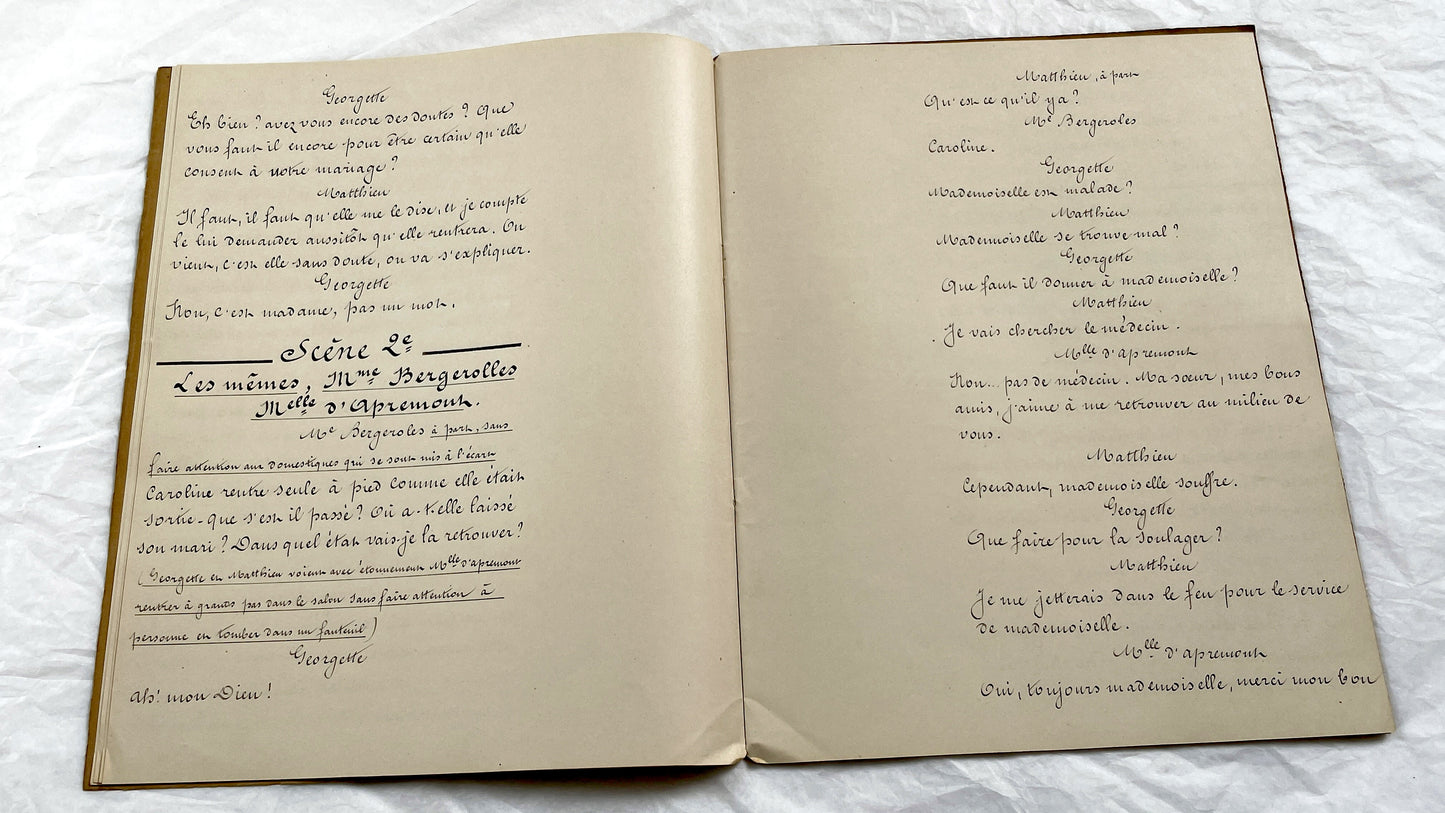 Georgette
Eh bien ? avez vous encore des doutes ? Que
vous faut il encore pour être certain qu'elle
consent à votre mariage ?
Matthieu
Il faut, il faut qu'elle me le dise, et je compte
le lui demander aussitôt qu'elle rentrera. On
vient, c'est elle sans doute, on va s'expliquer.
Georgette
Non, c'est madame, pas un mot.
Scène 2e
Les mêmes, Mme Bergerolles
Melle d'Apremont.
Me Bergeroles à part, sans
faire attention aux domestiques qui se sont mis à l'écart
Caroline rentre seule à pied comme elle était
sortie - que s'est il passé ? Où a-t-elle laissé
son mari ? Dans quel état vais-je la retrouver ?
(Georgette et Matthieu voient avec étonnement Mlle d'apremont
rentrer à grands pas dans le salon sans faire attention à
personne et tomber dans un fauteuil)
Georgette
Ah! mon Dieu !
Matthieu, à part
Qu'est ce qu'il y a ?
Me Bergeroles
Caroline.
Georgette
Mademoiselle est malade ?
Matthieu
Mademoiselle se trouve mal ?
Georgette
Que faut il donner à mademoiselle ?
Matthieu
Je vais chercher le médecin.
Mlle d'apremont
Non... pas de médecin. Ma sœur, mes bons
amis, j'aime à me retrouver au milieu de
vous.
Matthieu
Cependant, mademoiselle souffre.
Georgette
Que faire pour la soulager ?
Matthieu
Je me jetterais dans le feu pour le service
de mademoiselle.
Mlle d'apremont
Oui, toujours mademoiselle, merci mon bon